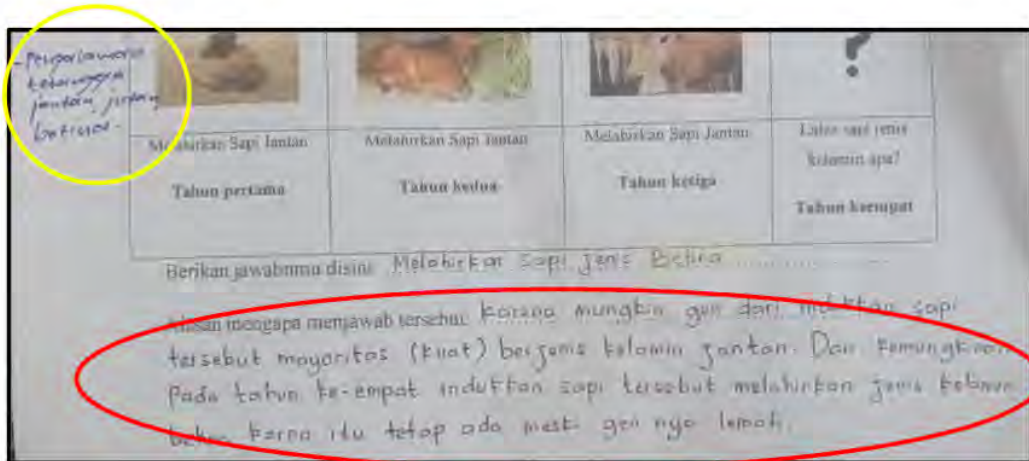 - Pengalaman
tetangga
jantan, jantan,
betina.
Melahirkan Sapi Jantan
Tahun pertama
Melahirkan Sapi Jantan
Tahun kedua
Melahirkan Sapi Jantan
Tahun ketiga
?
Lahir sapi jenis
kelamin apa?
Tahun keempat
Berikan jawabanmu disini: Melahirkan Sapi Jenis Betina
Alasan mengapa menjawab tersebut: karena mungkin gen dari indukkan sapi
tersebut mayoritas (kuat) berjenis kelamin jantan. Dan kemungkinan
Pada tahun ke-empat indukkan sapi tersebut melahirkan jenis kelamin
betina karna itu tetap ada meski gen nya lemah.